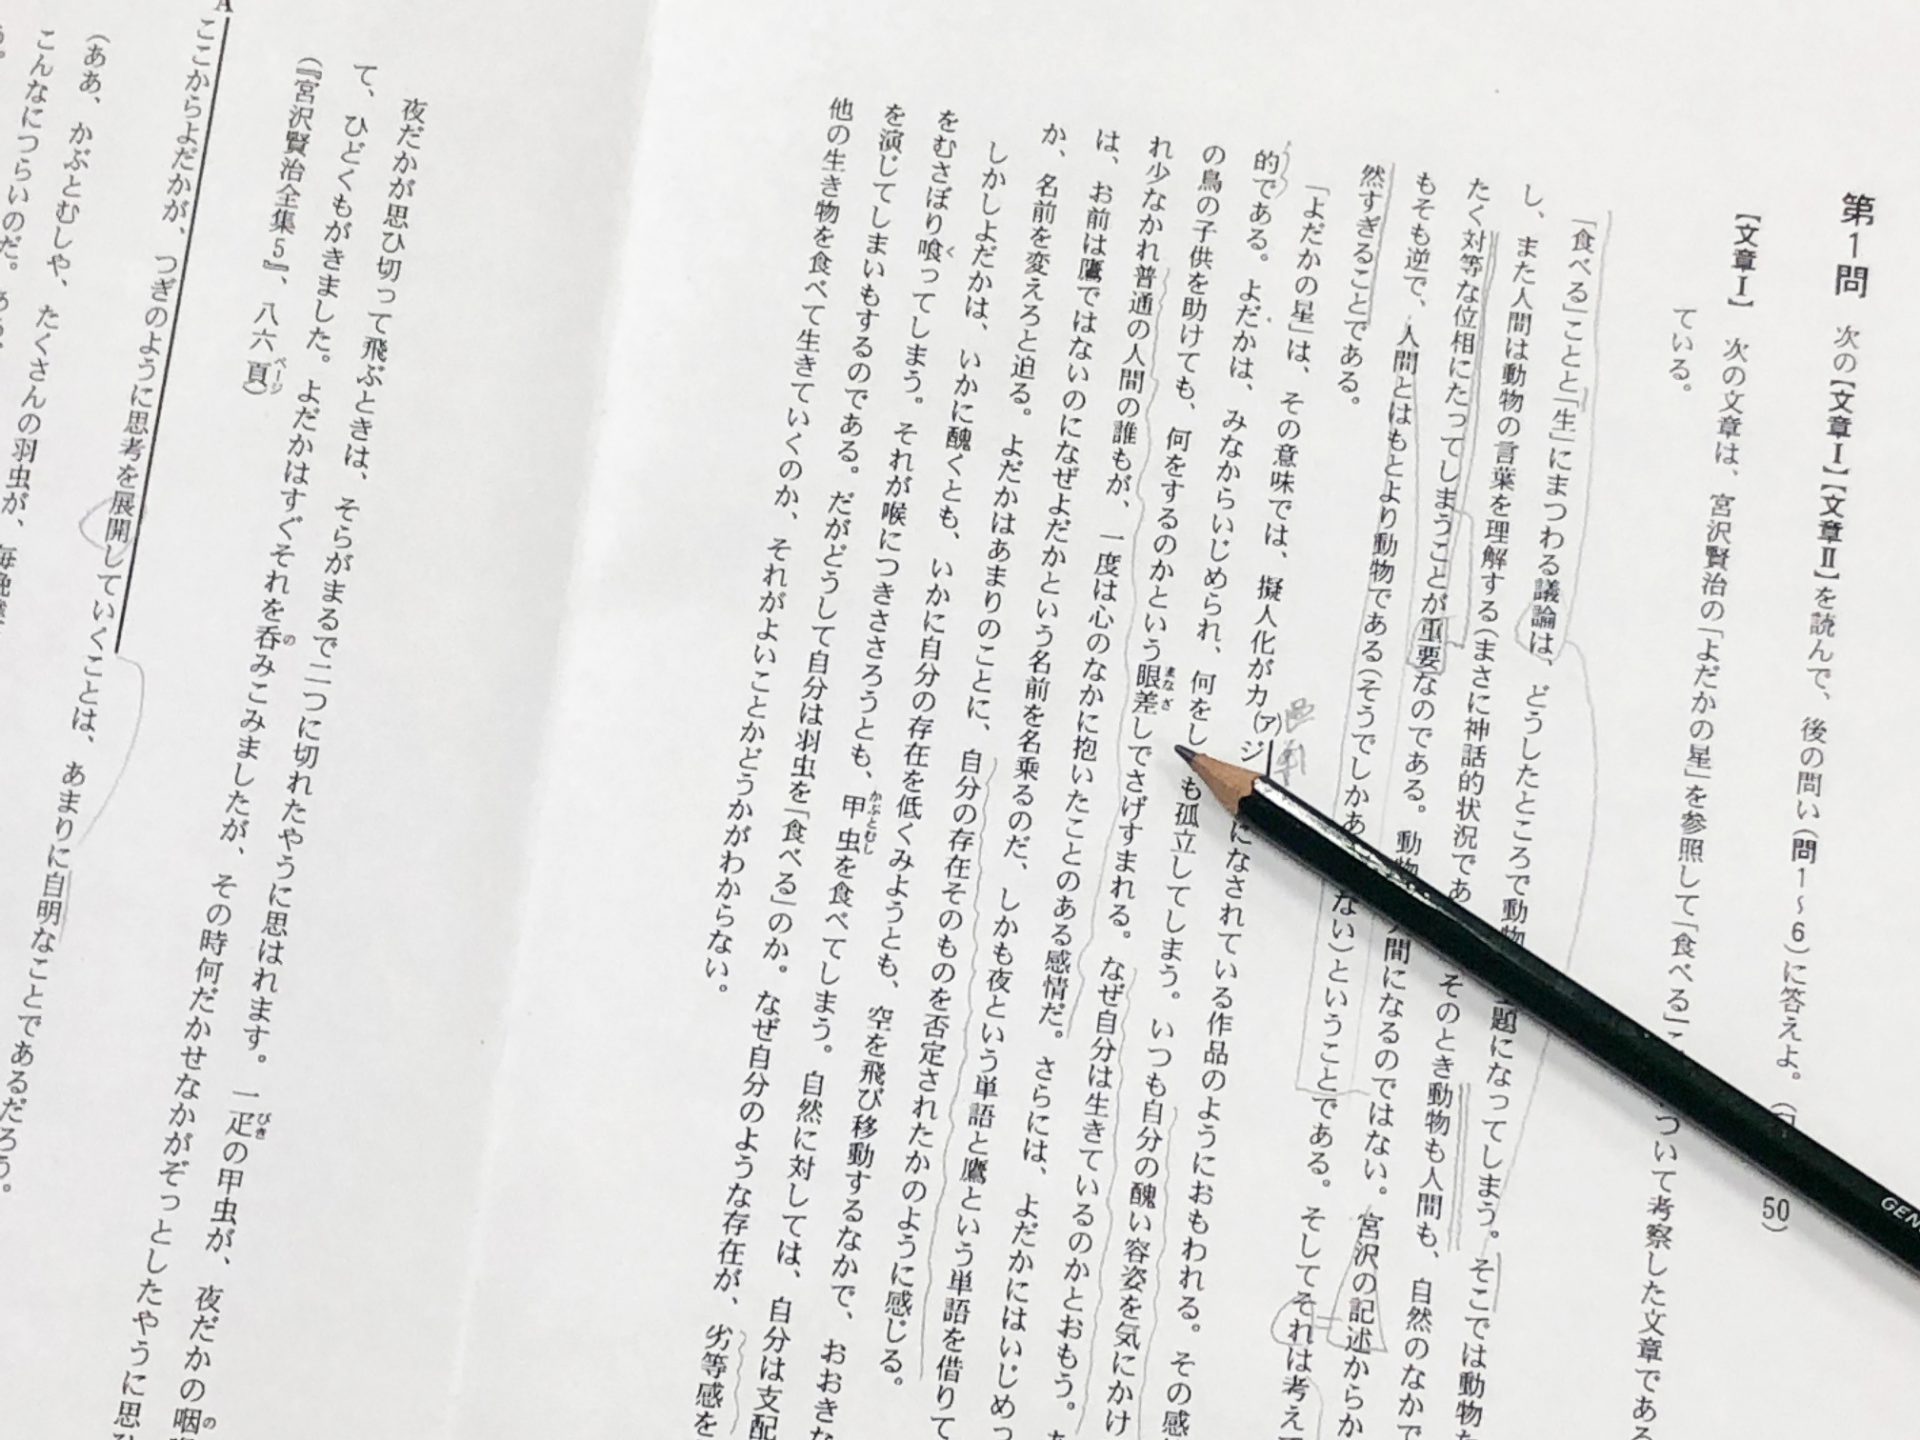 第1問 次の【文章Ⅰ】【文章Ⅱ】を読んで、後の問い(問1～6)に答えよ。( 50)
【文章Ⅰ】 次の文章は、宮沢賢治の「よだかの星」を参照して「食べる」 ついて考察した文章である
ている。
「食べる」ことと「生」にまつわる議論は、どうしたところで動物 題になってしまう。そこでは動物
し、また人間は動物の言葉を理解する(まさに神話的状況であ そのとき動物も人間も、自然のなかで
たく対等な位相にたってしまうことが重要なのである。動物 間になるのではない。宮沢の記述からか
もそも逆で、人間とはもとより動物である(そうでしかあ ない)ということである。そしてそれは考え
然すぎることである。
「よだかの星」は、その意味では、擬人化がカ(ア)ジ になされている作品のようにおもわれる。その感
的である。よだかは、みなからいじめられ、何をし も孤立してしまう。いつも自分の醜い容姿を気にかけ
の鳥の子供を助けても、何をするのかという眼差しでさげすまれる。なぜ自分は生きているのかとおもう。
れ少なかれ普通の人間の誰もが、一度は心のなかに抱いたことのある感情だ。さらには、よだかにはいじめっ
は、お前は鷹ではないのになぜよだかという名前を名乗るのだ、しかも夜という単語と鷹という単語を借りて
か、名前を変えろと迫る。よだかはあまりのことに、自分の存在そのものを否定されたかのように感じる。
しかしよだかは、いかに醜くとも、いかに自分の存在を低くみようとも、空を飛び移動するなかで、おおきな
をむさぼり喰ってしまう。それが喉につきささろうとも、甲虫を食べてしまう。自然に対しては、自分は支配
を演じてしまいもするのである。だがどうして自分は羽虫を「食べる」のか。なぜ自分のような存在が、劣等感を
他の生き物を食べて生きていくのか、それがよいことかどうかがわからない。
夜だかが思ひ切って飛ぶときは、そらがまるで二つに切れたやうに思はれます。一疋の甲虫が、夜だかの咽
て、ひどくもがきました。よだかはすぐそれを呑みこみましたが、その時何だかせなかがぞっとしたやうに思
(『宮沢賢治全集5』、八六頁)
A
ここからよだかが、つぎのように思考を展開していくことは、あまりに自明なことであるだろう。
(ああ、かぶとむしや、たくさんの羽虫が、毎晩
こんなにつらいのだ。
GEN